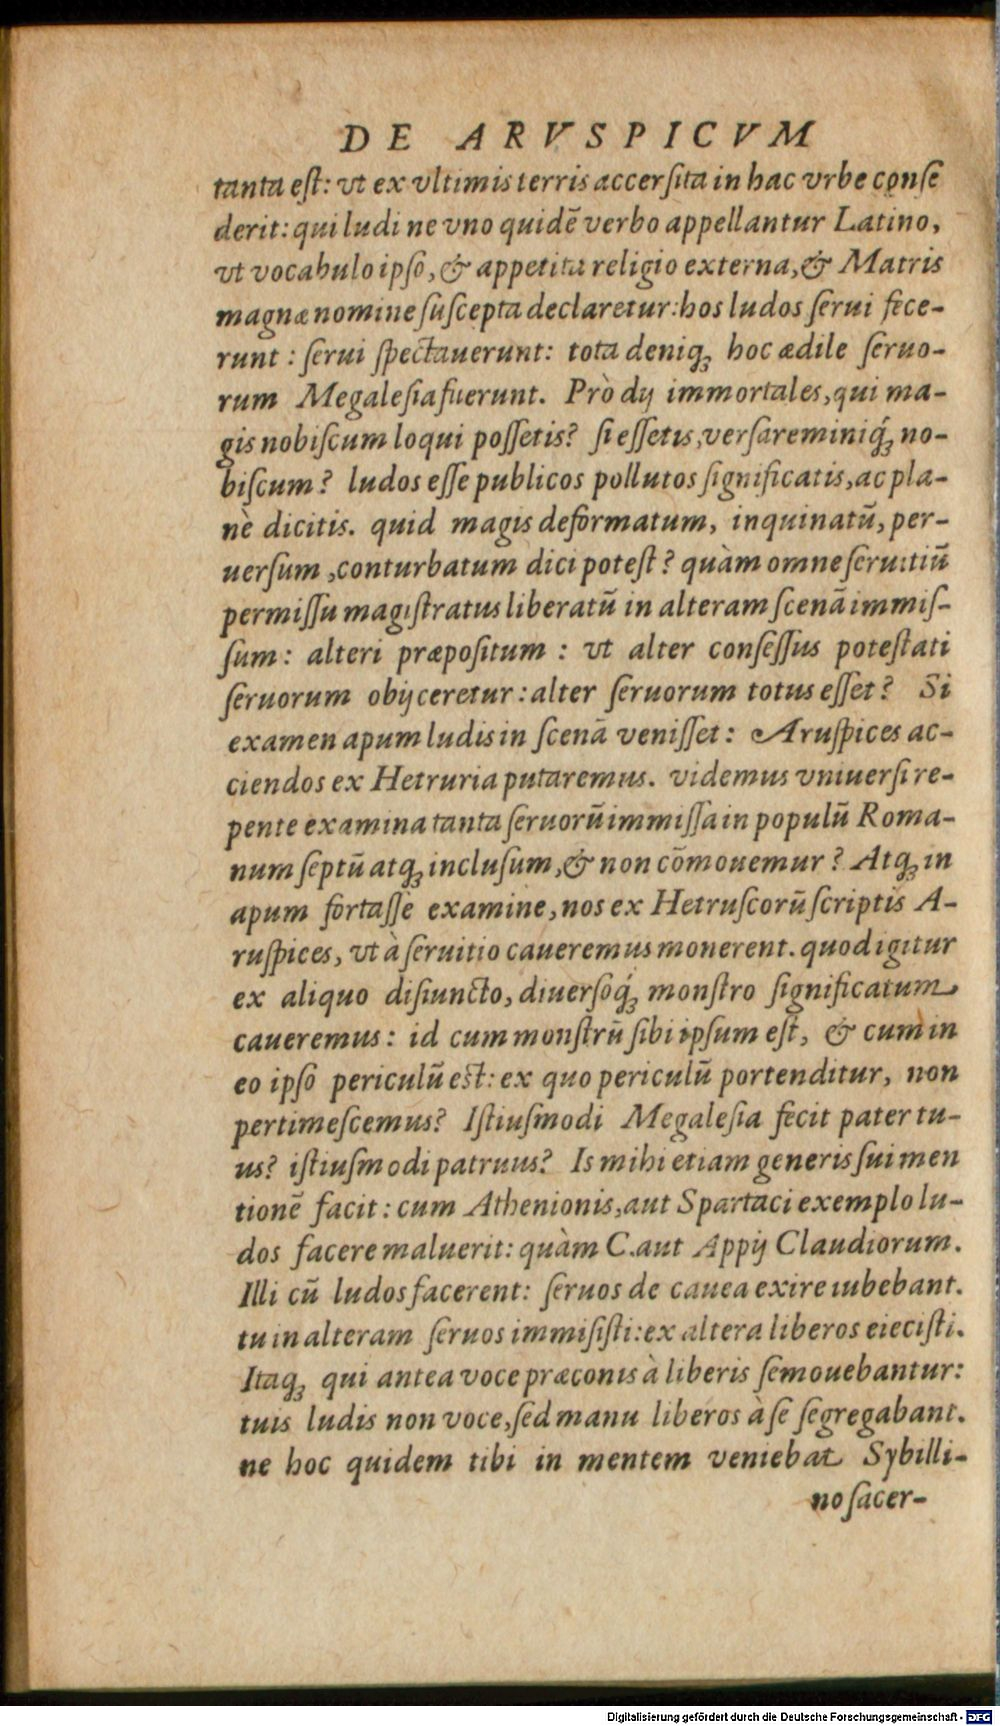 DE ARVSPICVM
tanta eſt: vt ex vltimis terris accerſita in hac vrbe conſe
derit: qui ludi ne vno quidē verbo appellantur Latino,
vt vocabulo ipſo, & appetita religio externa, & Matris
magnæ nomine ſuſcepta declaretur: hos ludos ſerui fece-
runt: ſerui ſpectauerunt: tota deniq; hoc ædile ſeruo-
rum Megaleſia fuerunt. Prò dij immortales, qui ma-
gis nobiſcum loqui poſſetis? ſi eſſetis, verſareminiq́; no-
biſcum? ludos eſſe publicos pollutos ſignificatis, ac pla-
nè dicitis. quid magis deformatum, inquinatū, per-
uerſum, conturbatum dici poteſt? quàm omne ſeruitiū
permiſſu magiſtratus liberatū in alteram ſcenā immiſ-
ſum: alteri præpoſitum: vt alter conſeſſus poteſtati
ſeruorum obijceretur: alter ſeruorum totus eſſet? Si
examen apum ludis in ſcenā veniſſet: Aruſpices ac-
ciendos ex Hetruria putaremus. videmus vniuerſi re-
pente examina tanta ſeruorū immiſſa in populū Roma-
num ſeptū atq; incluſum, & non cōmouemur? Atq; in
apum fortaſſè examine, nos ex Hetruſcorū ſcriptis A-
ruſpices, vt à ſeruitio caueremus monerent. quod igitur
ex aliquo diſiuncto, diuerſoq́; monſtro ſignificatum
caueremus: id cum monſtrū ſibi ipſum eſt, & cum in
eo ipſo periculū eſt: ex quo periculū portenditur, non
pertimeſcemus? Iſtiuſmodi Megaleſia fecit pater tu-
us? iſtiuſmodi patruus? Is mihi etiam generis ſui men
tionē facit: cum Athenionis, aut Spartaci exemplo lu-
dos facere maluerit: quàm C. aut Appij Claudiorum.
Illi cū ludos facerent: ſeruos de cauea exire iubebant.
tu in alteram ſeruos immiſiſti: ex altera liberos eieciſti.
Itaq; qui antea voce præconis à liberis ſemouebantur:
tuis ludis non voce, ſed manu liberos à ſe ſegregabant.
ne hoc quidem tibi in mentem veniebat Sybilli-
no ſacer-
Digitalisierung gefördert durch die Deutsche Forschungsgemeinschaft - DFG